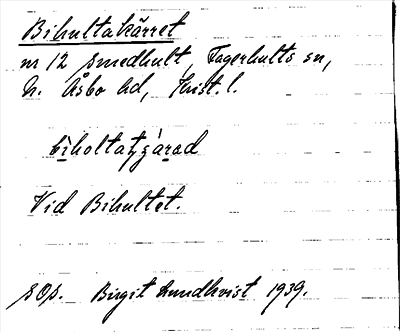 Bihultakärret
nr 12 Smedhult, Fagerhults sn,
N. Åsbo hd, Krist. l.
Vid Bihultet.
SOP. Birgit Lundkvist 1939.